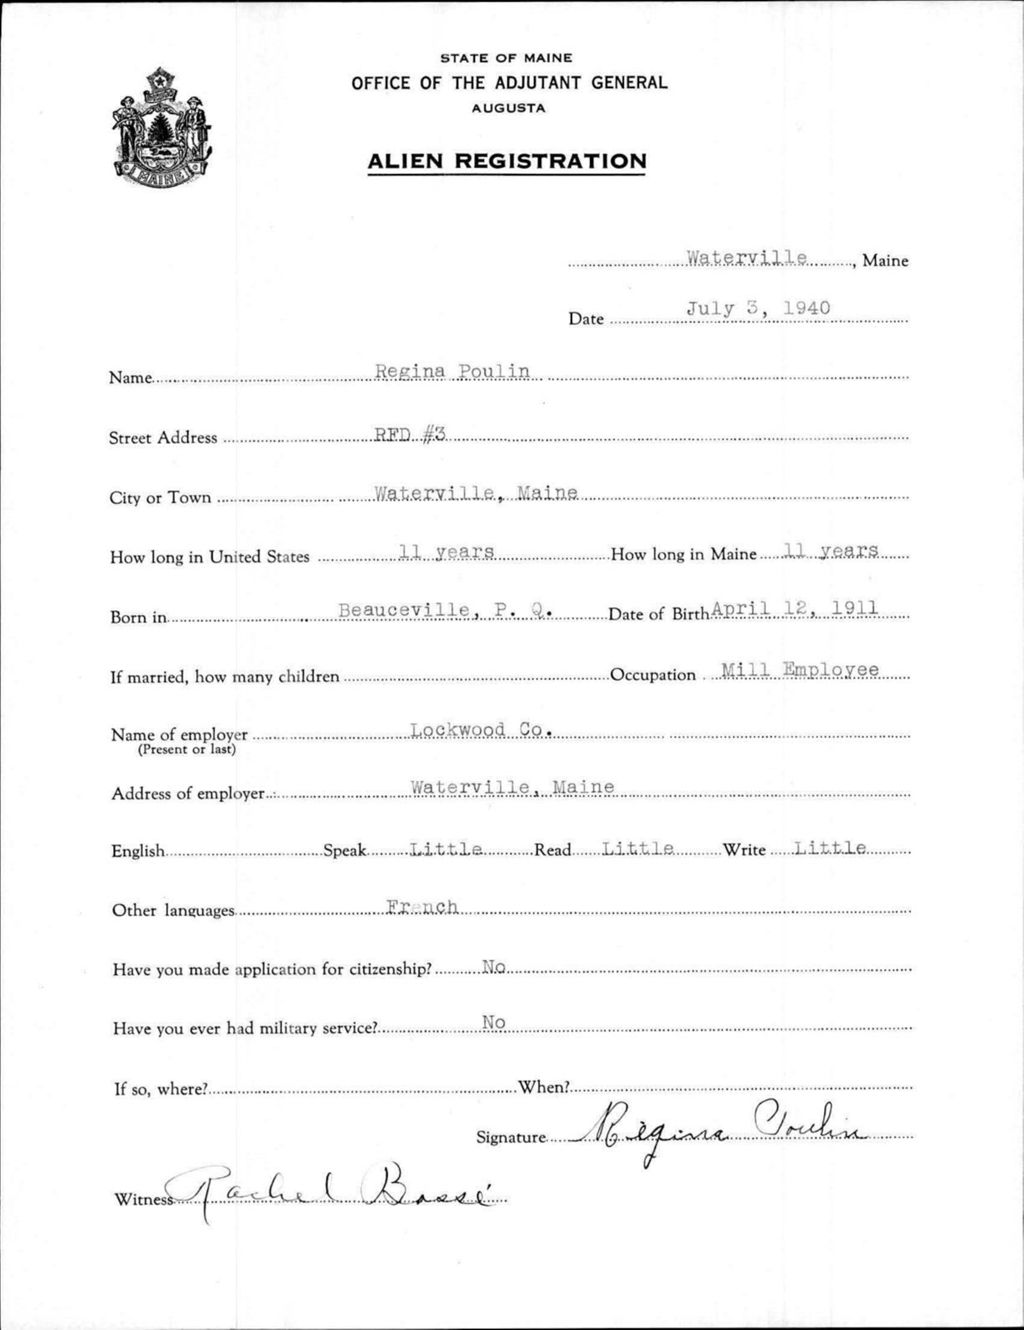 STATE OF MAINE
OFFICE OF THE ADJUTANT GENERAL
AUGUSTA
ALIEN REGISTRATION
MAINE
Waterville, Maine
Date July 3, 1940
Name Regina Poulin
Street Address RFD #3
City or Town Waterville, Maine
How long in United States 11 years How long in Maine 11 years
Born in Beauceville, P. Q. Date of Birth April 12, 1911
If married, how many children Occupation Mill Employee
Name of employer Lockwood Co.
(Present or last)
Address of employer Waterville, Maine
English Speak Little Read Little Write Little
Other languages French
Have you made application for citizenship? No
Have you ever had military service? No
If so, where? When?
Signature Régina Poulin
Witness Rachel Bossé